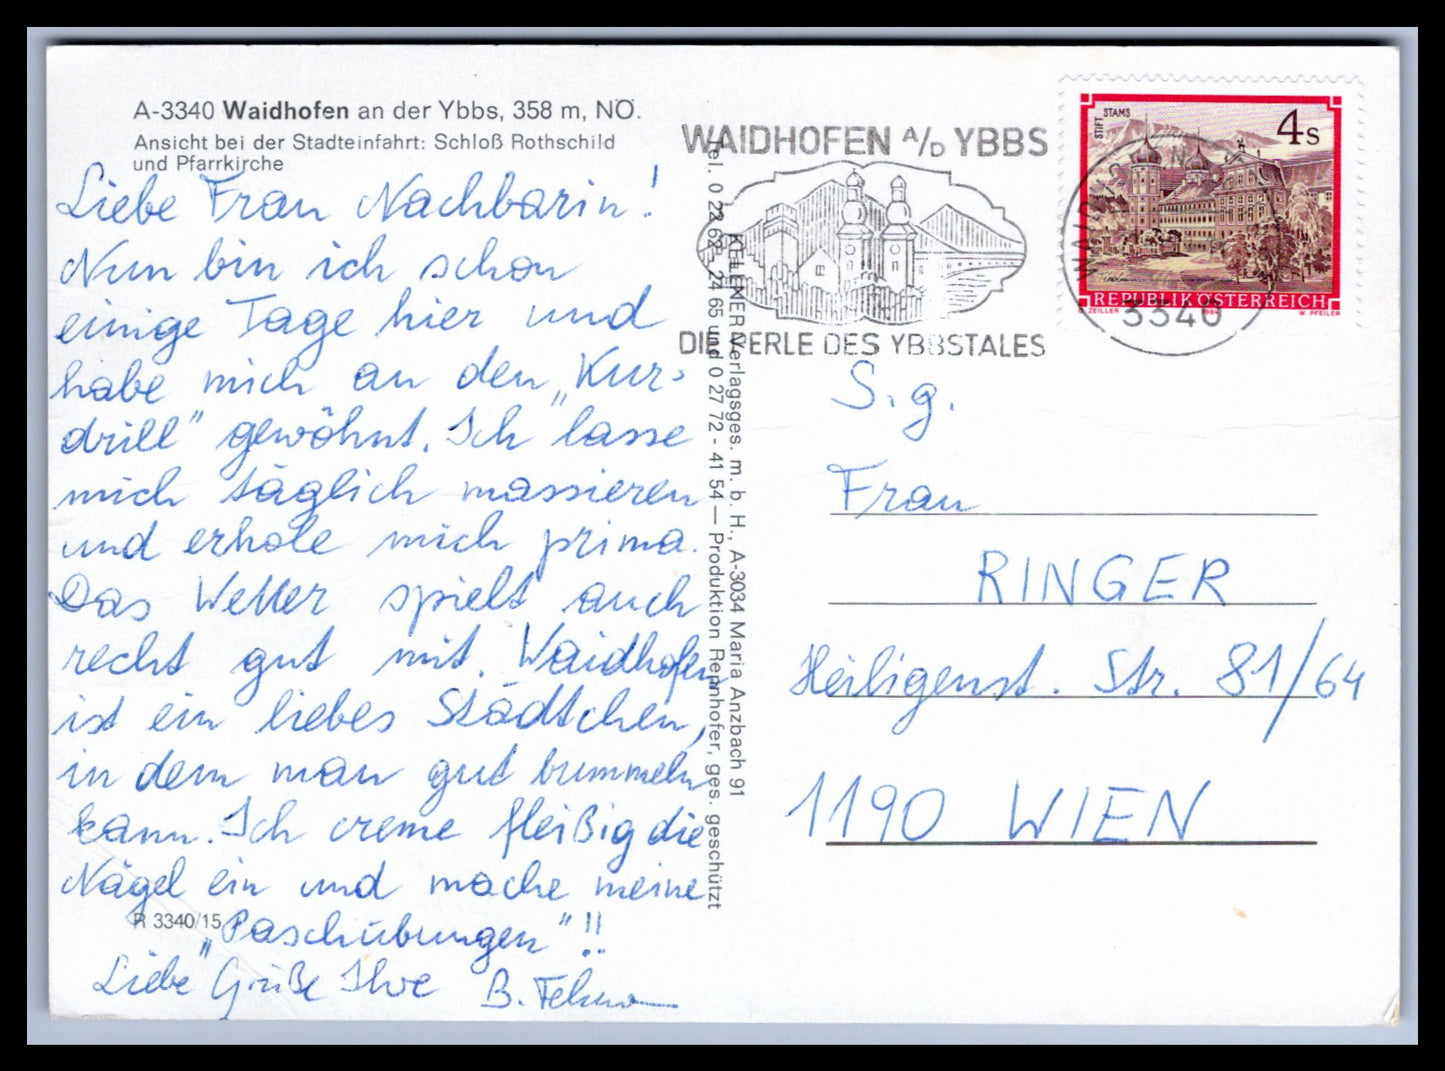 A-3340 Waidhofen an der Ybbs, 358 m, NÖ.
Ansicht bei der Stadteinfahrt: Schloß Rothschild
und Pfarrkirche
Liebe Frau Nachbarin!
Nun bin ich schon
einige Tage hier und
habe mich an den „Kur-
drill" gewöhnt. Ich lasse
mich täglich massieren
und erhole mich prima.
Das Wetter spielt auch
recht gut mit. Waidhofen
ist ein liebes Städtchen,
in dem man gut bummeln
kann. Ich creme fleißig die
Nägel ein und mache meine
„Paschübungen"!!
Liebe Grüße Ihre B.
R 3340/15
KELLNER Verlagsges. m. b. H., A-3034 Maria Anzbach 91
Tel. 0 22 62 - 24 65 und 0 27 72 - 41 54 — Produktion Reppnhofer, ges. geschützt
WAIDHOFEN A/D YBBS
DIE PERLE DES YBBSTALES
STIFT STAMS
4 S
REPUBLIK ÖSTERREICH
O. ZEILLER 1984 W. PFEILER
3340
S. g.
Frau
RINGER
Heiligenst. Str. 81/64
1190 WIEN